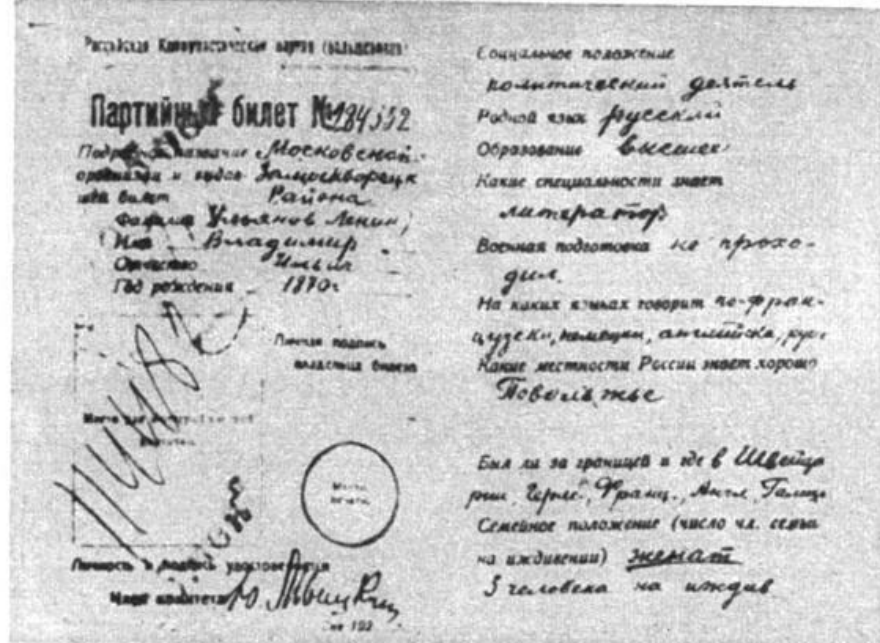 Российская Коммунистическая партия (большевиков)
Партийный билет №
Московской
организации и
Замоскворецк
билет Района
Фамилия Ульянов Ленин
Имя Владимир
Отчество Ильич
Год рождения 1870г
Личная подпись
владельца билета
Место
печати
Личность и подпись удостоверяется
Социальное положение
политический деятель
Родной язык русский
Образование высшее
Какие специальности знает
литератор
Военная подготовка не прохо-
дил.
На каких языках говорит по-фран-
цузски, немецки, английски, рус
Какие местности России знает хорошо
Поволжье
Был ли за границей и где в Швейца
рии, Герм., Франц., Англ., Галиц
Семейное положение (число чл. семьи
на иждивении) женат
3 человека на иждив